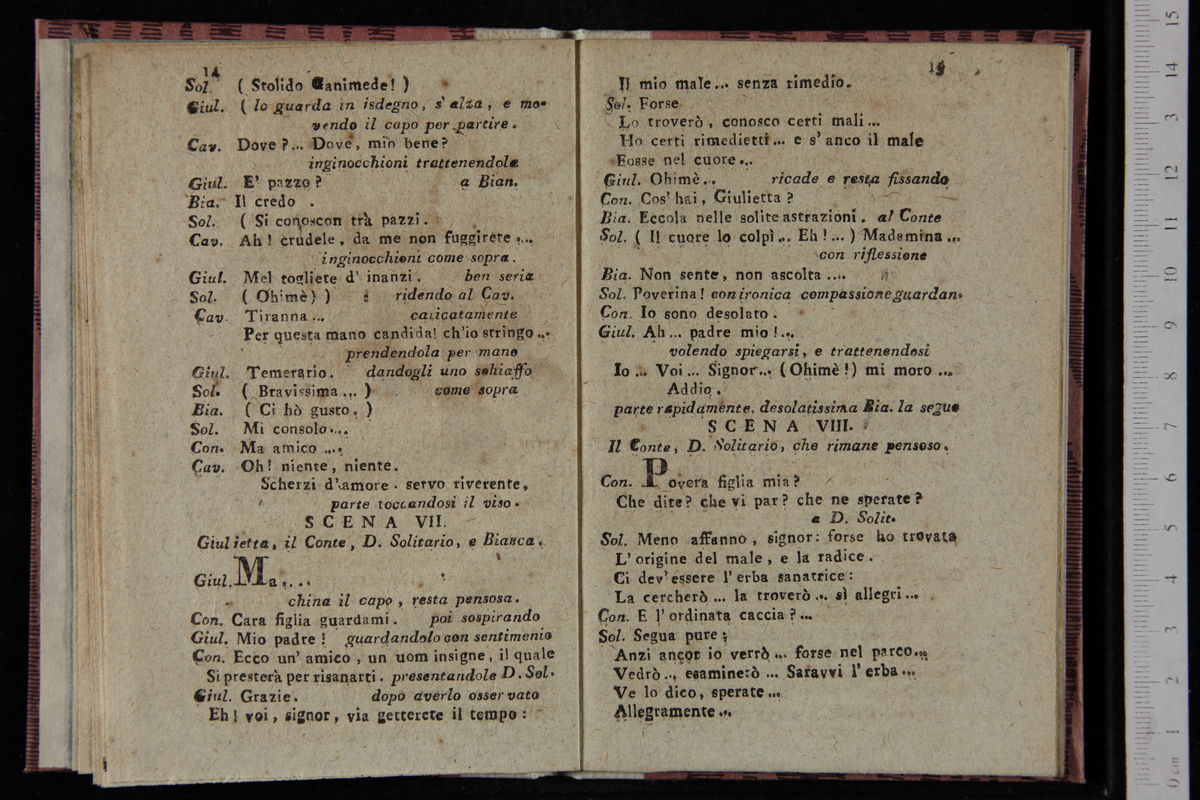 14
Sol. ( Stolido Ganimede! )
Giul. ( lo guarda in isdegno, s'alza, e mo-
vendo il capo per partire.
Cav. Dove?... Dove, mio bene?
inginocchioni trattenendola
Giul. E' pazzo? a Bian.
Bia. Il credo .
Sol. ( Si conoscon trà pazzi.
Cav. Ah! crudele, da me non fuggirete ....
inginocchioni come sopra.
Giul. Mel togliete d' inanzi. ben seria
Sol. ( Ohimè! ) ridendo al Cav.
Cav. Tiranna ... caricatamente
Per questa mano candida! ch'io stringo ...
prendendola per mano
Giul. Temerario. dandogli uno schiaffo
Sol. ( Bravissima ... ) come sopra
Bia. ( Ci hò gusto. )
Sol. Mi consolo....
Con. Ma amico ....
Cav. Oh! niente, niente.
Scherzi d'amore. servo riverente,
parte toccandosi il viso.
SCENA VII.
Giulietta, il Conte, D. Solitario, e Bianca.
Giul. Ma ....
china il capo, resta pensosa.
Con. Cara figlia guardami. poi sospirando
Giul. Mio padre! guardandolo con sentimento
Con. Ecco un' amico, un uom insigne, il quale
Si presterà per risanarti. presentandole D. Sol.
Giul. Grazie. dopo averlo osservato
Eh! voi, signor, via getterete il tempo:
15
Il mio male... senza rimedio.
Sol. Forse
Lo troverò, conosco certi mali ...
Ho certi rimedietti... e s' anco il male
Fosse nel cuore...
Giul. Ohimè... ricade e resta fissando
Con. Cos' hai, Giulietta?
Bia. Eccola nelle solite astrazioni. al Conte
Sol. ( Il cuore lo colpì... Eh!... ) Madamina ...
con riflessione
Bia. Non sente, non ascolta ....
Sol. Poverina! con ironica compassione guardan.
Con. Io sono desolato.
Giul. Ah... padre mio!...
volendo spiegarsi, e trattenendosi
Io ... Voi ... Signor... (Ohimè!) mi moro ...
Addio.
parte rapidamente, desolatissima Bia. la segue
SCENA VIII.
Il Conte, D. Solitario, che rimane pensoso.
Con. Povera figlia mia?
Che dite? che vi par? che ne sperate?
a D. Solit.
Sol. Meno affanno, signor: forse ho trovata
L' origine del male, e la radice.
Ci dev' essere l' erba sanatrice:
La cercherò ... la troverò ... sì allegri ...
Con. E l' ordinata caccia?...
Sol. Segua pure;
Anzi ancor io verrò ... forse nel parco...
Vedrò... esaminerò ... Saravvi l' erba...
Ve lo dico, sperate ...
Allegramente ...